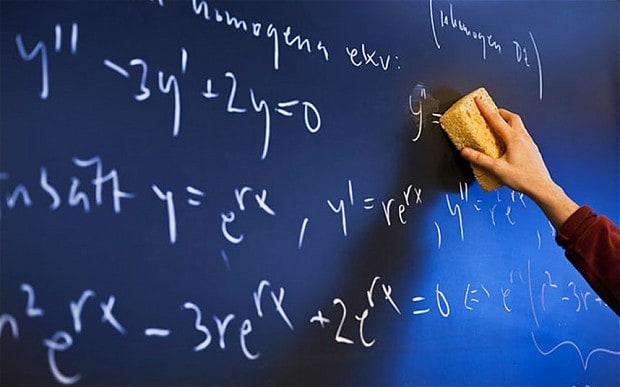 homogena ekv:
(Inhomogen DE)
y'' - 3y' + 2y = 0
y'' =
insatt y = e^rx, y' = re^rx, y'' = r e^rx
r² e^rx - 3re^rx + 2e^rx = 0 (=) e^rx [r² - 3r +